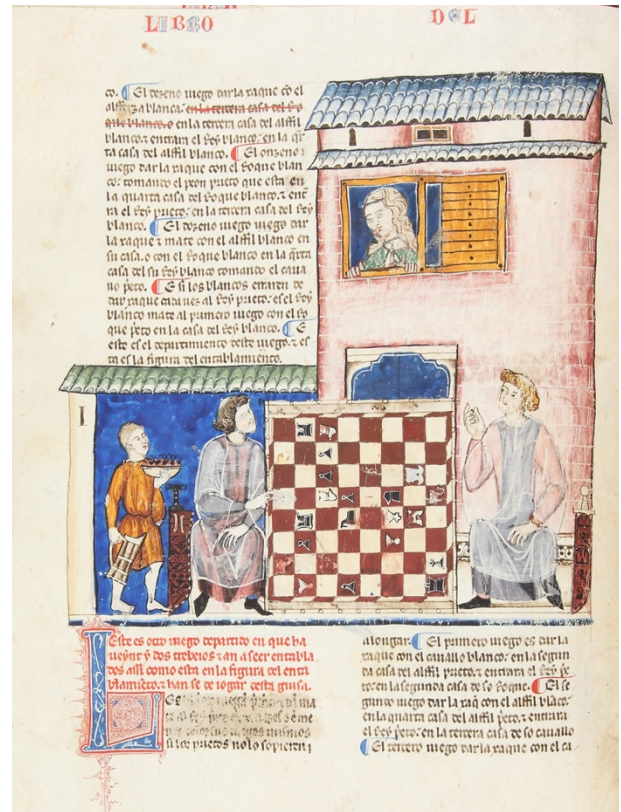 LIBRO
DEL
co. El dezeno iuego dar la xaque co el
alfferza blanca. en la tercera casa del Rey
que blanco. o en la tercera casa del alffil
blanco: entrara el Rey blanco: en la q̃r
ta casa del alffil blanco. El onzeno
iuego dar la xaque con el Roque blan
co: tomando el peon prieto que esta en
la quarta casa del Roque blanco. & ent
ra el Rey prieto: en la tercera casa del Rey
blanco. El dozeno iuego iuego dar
la xaque & mate con el alffil blanco en
su casa. o con el Roque blanco en la q̃rta
casa del su Rey blanco tomando el caua
llo p̃eto. E si los blancos erraren de
dar xaque cada uez al Rey prieto: es el Rey
blanco mate al primero iuego con el Ro
que p̃eto en la casa del Rey blanco. E
este es el departimiento deste iuego. & es
ta es la figura del entablamiento.
Este es otro iuego departido en que ha
ueynt & dos trebeios & an a seer entabla
dos assi como esta en la figura del enta
blamiẽto. & han se de iogar desta guisa.
si los prietos no lo sopieren
alongar. El primero iuego es dar la
xaque con el cauallo blanco: en la segun
da casa del alffil prieto: & entrara el Rey p̃e
to: en la segunda casa de so Roque. El se
gundo iuego dar la xaq̃ con el alffil blãco:
en la quarta casa del alffil p̃eto. & entrara
el Rey p̃eto: en la tercera casa de so cauallo
El tercero iuego dar la xaque con el ca